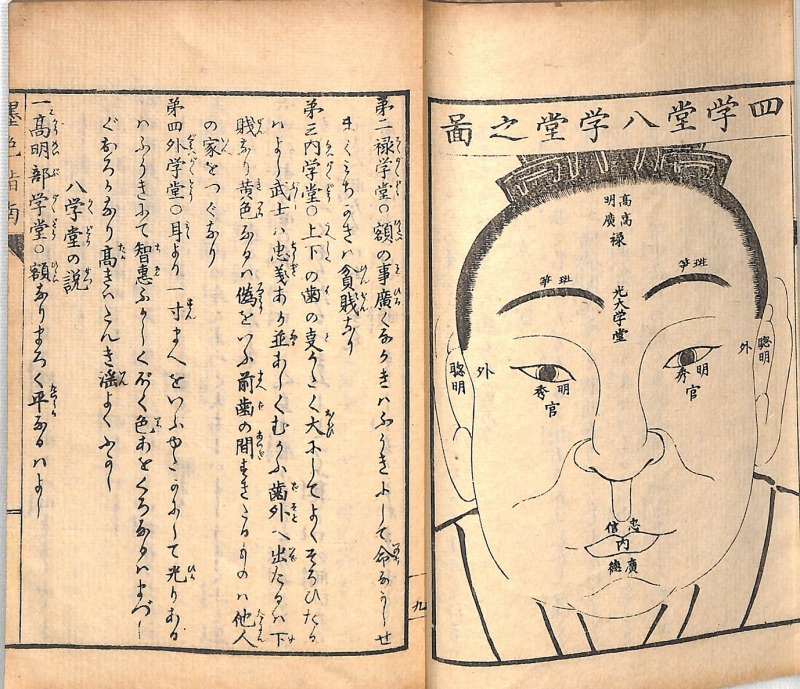 四学堂八学堂之圖
高高
明廣
禄
班笋
班笋
光大学堂
聡明
外
外
聰明
明
秀
官
明
秀
官
忠
信
内
廣
徳
第二禄学堂○額の事廣くながきハふうきにして命ながしせ
まくみぢかきハ貧賎なり
第三内学堂○上下の歯の
く大にしてよくそろひたる
ハよし武士ハ忠義あり並あしくむかふ歯外へ出たるハ下
賎なり黄色なるハ偽をいふ前歯の間すきたるものハ他人
の家をつぐなり
第四外学堂○耳より一寸まへをいふ
して光りある
ハふうきにて智惠ふかくしく
く色あをくろなるハまづし
高きハたんき
よくふかし
八学堂の説
一高明部学堂○額なりまろく平なるハよし
九
墨色指南